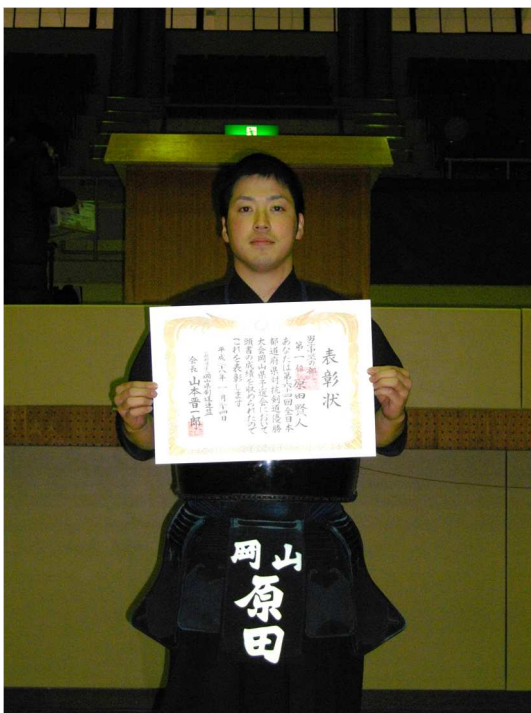 表彰状
男子大将の部
第一位 原田賢人
あなたは第六十四回全日本
都道府県対抗剣道優勝
大会岡山県予選会において
頭書の成績を収められたので
これを表彰します
平成二十八年一月二十四日
岡山県剣道連盟
会長 山本晋一郎
岡山
原田